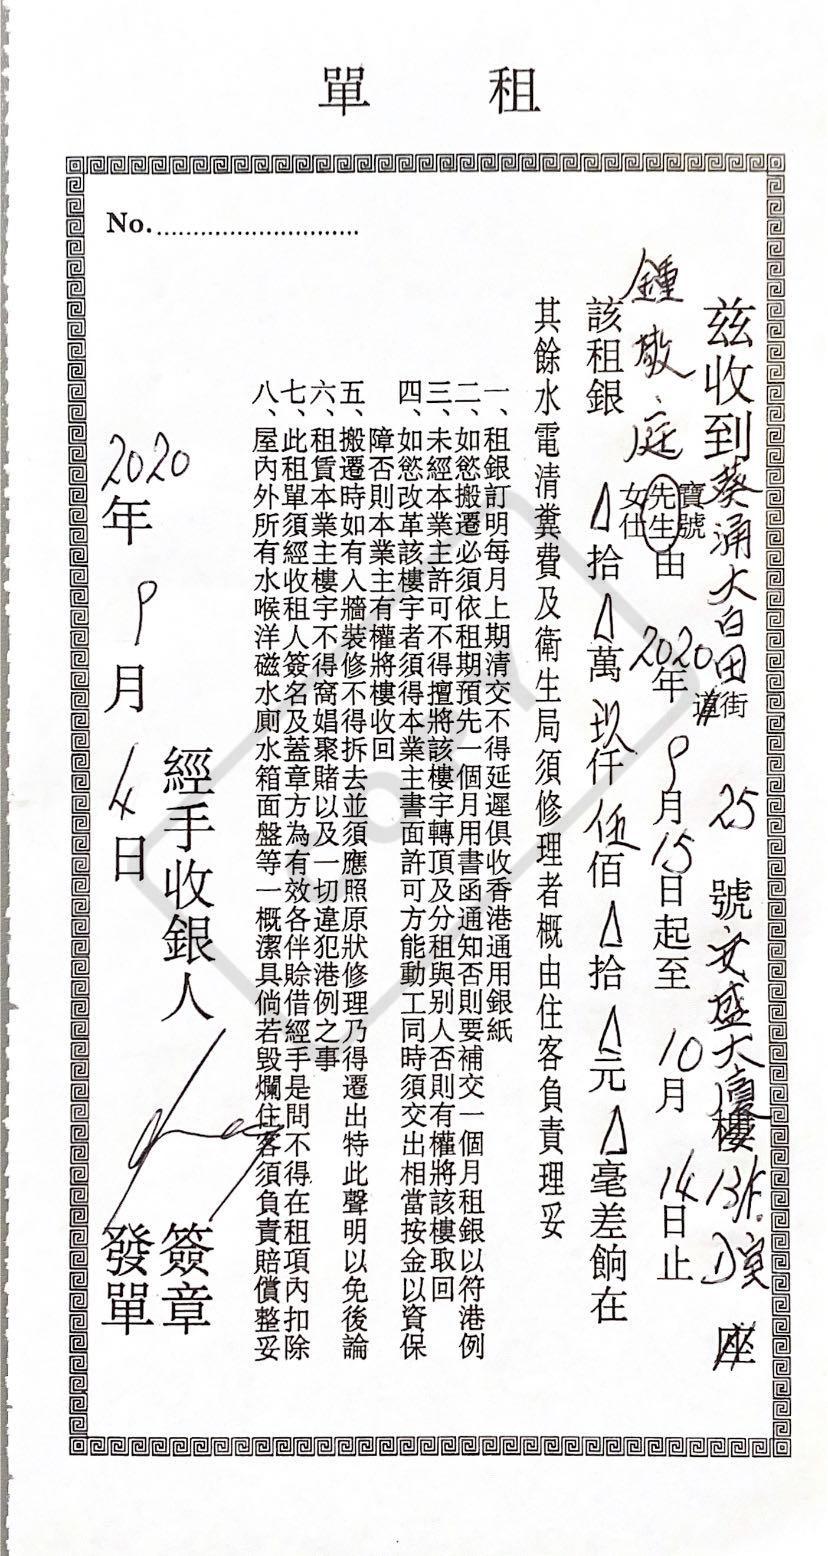 租單
No.
茲收到葵涌大白田街道 25 號安盛大廈樓 13/F. D室 座
鍾敬庭 寶號 先生 女仕 由 2020年 9月 15日起至 10月 14日止
該租銀 △拾△萬玖仟伍佰△拾△元△毫差餉在
其餘水電清糞費及衛生局須修理者概由住客負責理妥
一、租銀訂明每月上期清交不得延遲俱收香港通用銀紙
二、如慾搬遷必須依租期預先一個月用書函通知否則要補交一個月租銀以符港例
三、未經本業主許可不得擅將該樓宇轉頂及分租與別人否則有權將該樓取回
四、如慾改革該樓宇者須得本業主書面許可方能動工同時須交出相當按金以資保
障否則本業主有權將樓收回
五、搬遷時如有入牆裝修不得拆去並須應照原狀修理乃得遷出特此聲明以免後論
六、租賃本業主樓宇不得窩娼聚賭以及一切違犯港例之事
七、此租單須經收租人簽名及蓋章方為有效各伴賒借經手是問不得在租項內扣除
八、屋內外所有水喉洋磁水廁水箱面盤等一概潔具倘若毀爛住客須負責賠償整妥
經手收銀人 簽章
2020年 9月 4日 發單